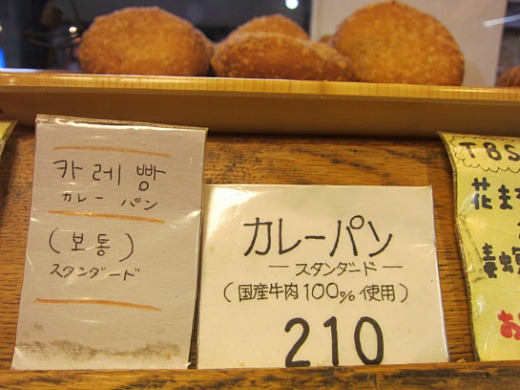 카레빵
カレー パン
(보통)
スタンダード
カレーパン
―スタンダード―
(国産牛肉100%使用)
210
TBS
花ま
青